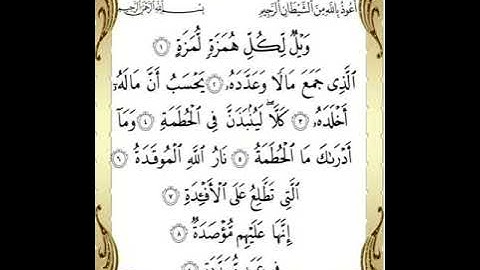 أعوذ بالله من الشيطان الرجيم بسم الله الرحمن الرحيم
وَيْلٌ لِّكُلِّ هُمَزَةٍ لُّمَزَةٍ ١
الَّذِى جَمَعَ مَالًا وَعَدَّدَهُۥ ٢ يَحْسَبُ أَنَّ مَالَهُۥٓ
أَخْلَدَهُۥ ٣ كَلَّا ۖ لَيُنۢبَذَنَّ فِى الْحُطَمَةِ ٤ وَمَآ
أَدْرَىٰكَ مَا الْحُطَمَةُ ٥ نَارُ اللَّهِ الْمُوقَدَةُ ٦
الَّتِى تَطَّلِعُ عَلَى الْأَفْـِٔدَةِ ٧
إِنَّهَا عَلَيْهِم مُّؤْصَدَةٌ ٨